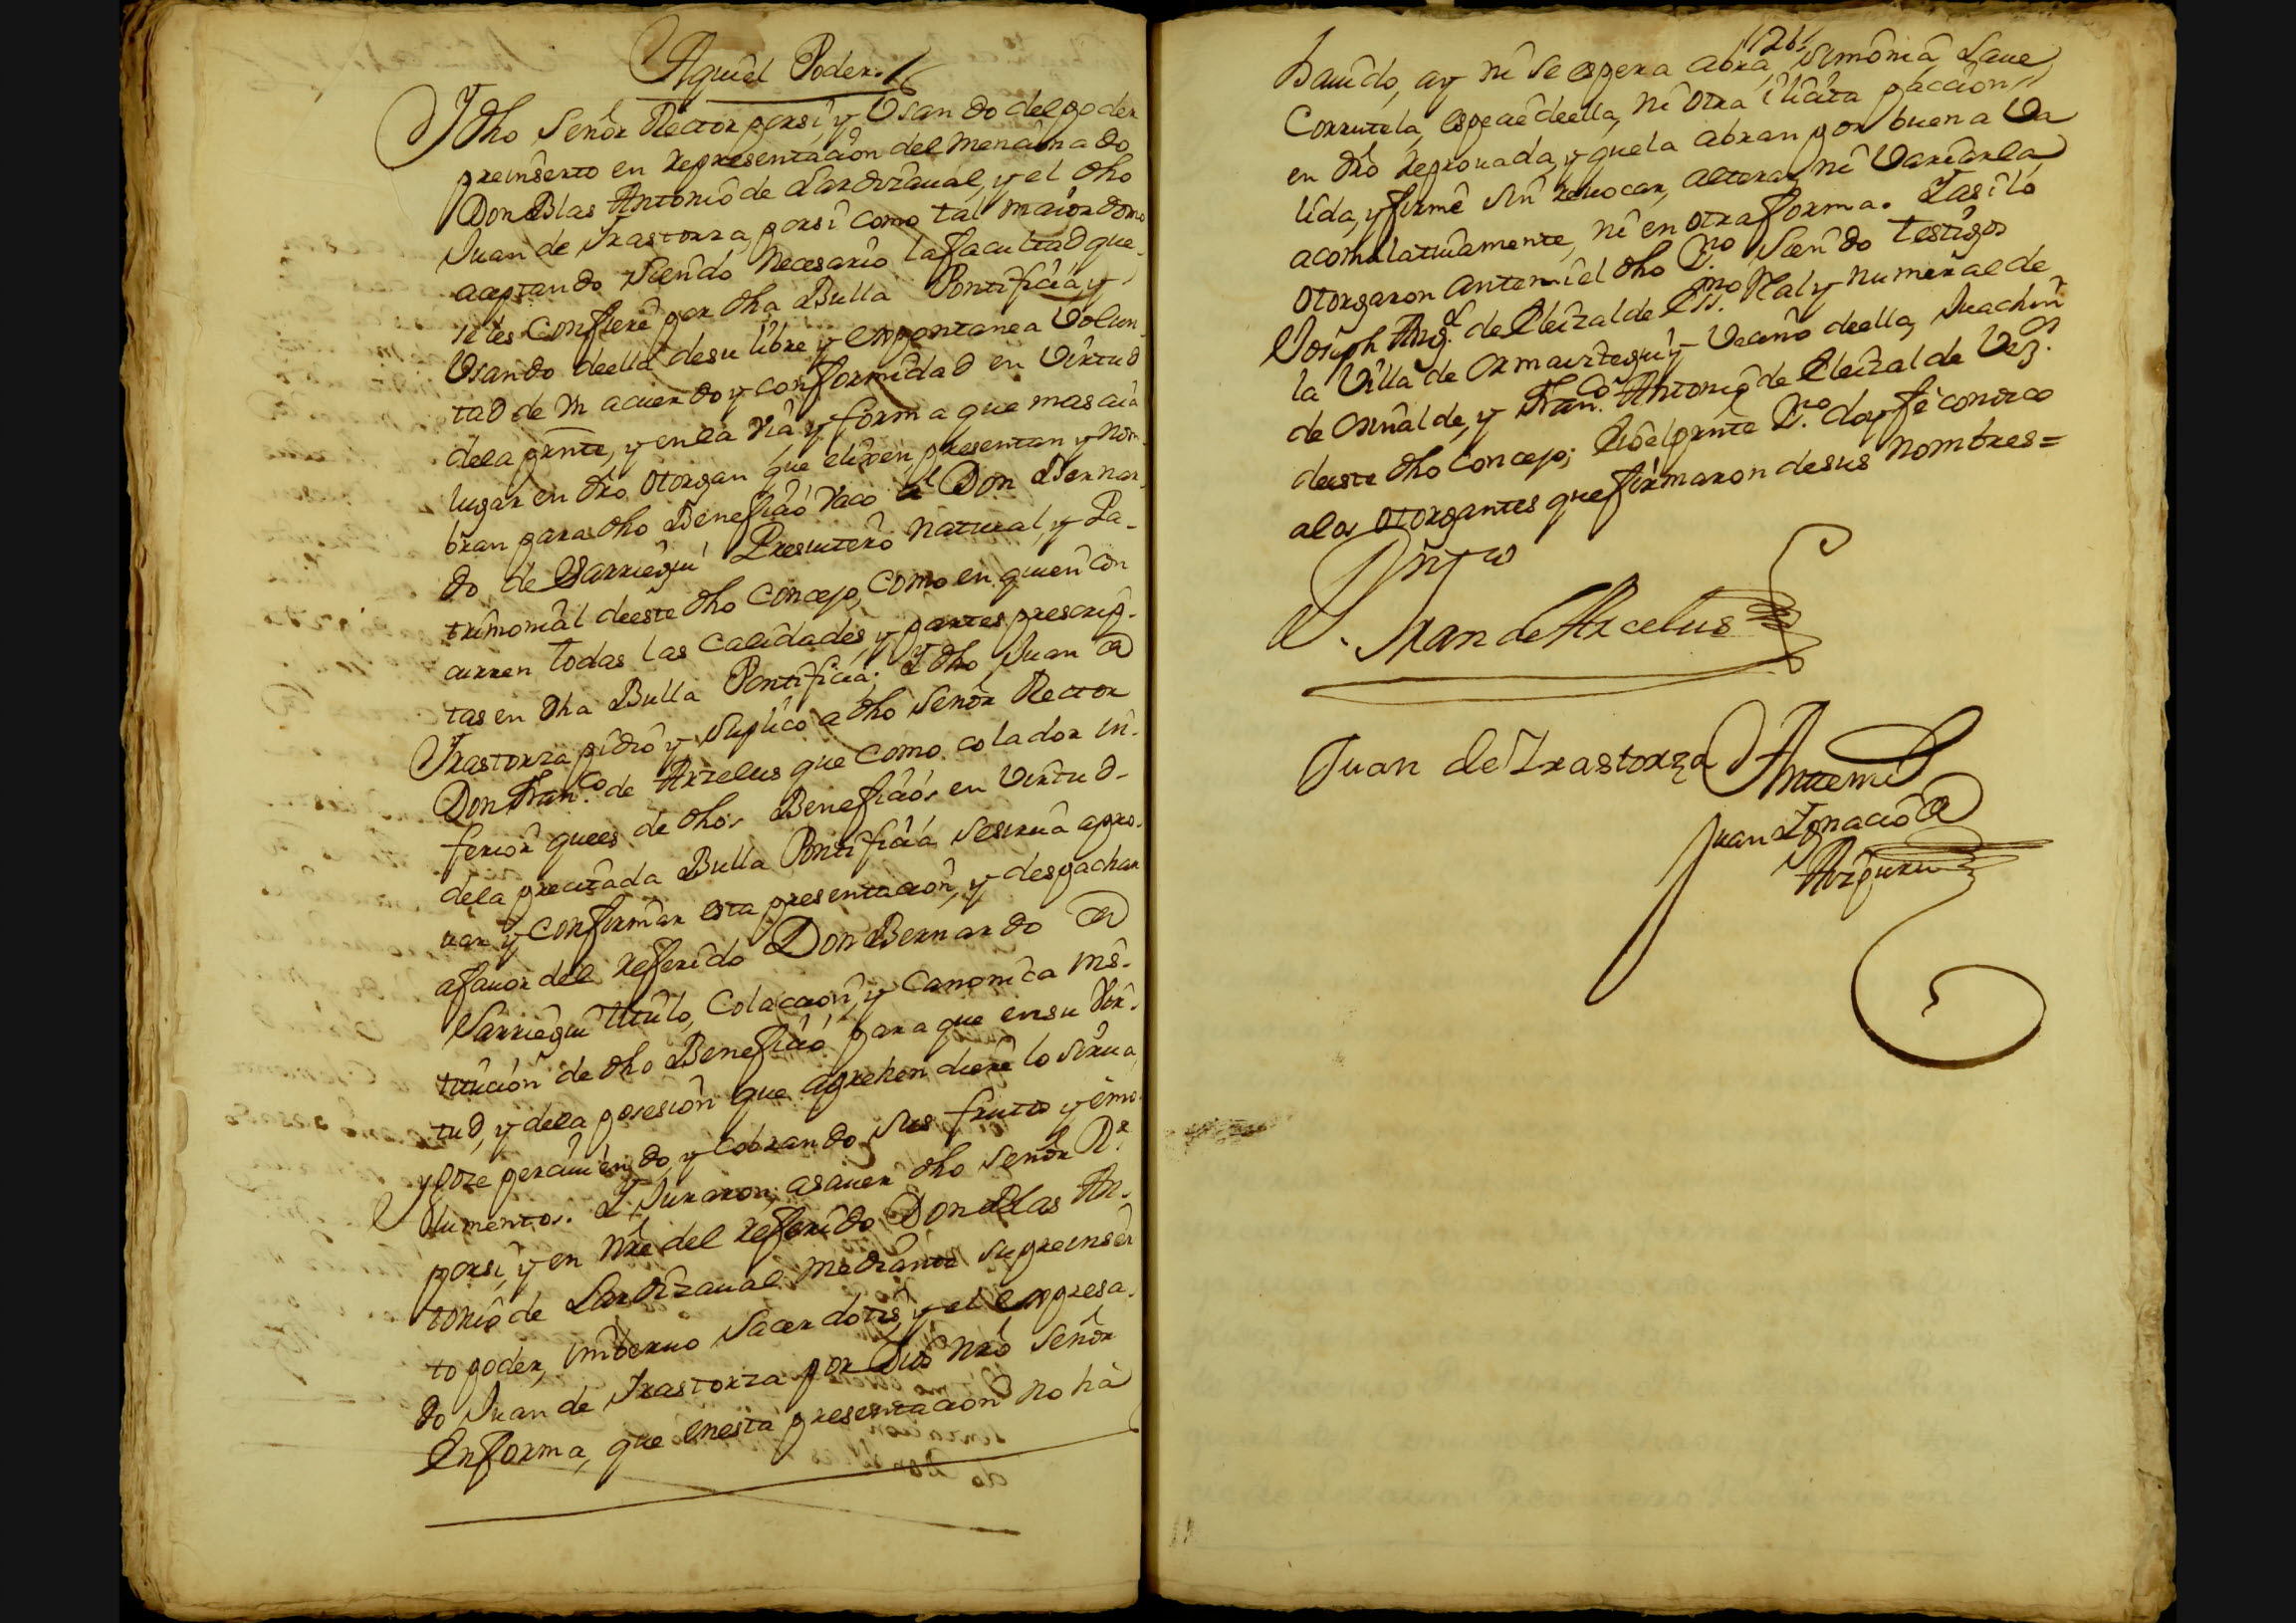 Aqui el Poder
Y dho Señor Rector por si, y Usando del poder
preinserto en representacion del mencionado
Don Blas Antonio de Lardizaual, y el dho
Juan de Yrastorza por si como tal maiordomo
aceptando siendo necesario la facultad que
se les confiere por dha Bulla Pontificia, y
Usando de ella de su libre y espontanea Volun-
tad de un acuerdo y conformidad en Virtud
de la prnte, y en la via y forma que mas aia
lugar en dro, otorgan que elixen, presentan y nom-
bran para dho Beneficio vaco al Don Bernar-
do de Sarriegui Presuitero natural, y Pa-
trimonial de este dho Concejo, como en quien con
curren todas las calidades, y partes prescrip-
tas en dha Bulla Pontificia; Y dho Juan de
Yrastorza pidio y suplico a dho Señor Rector
Don Fran.co de Arzelus que como colador in-
ferior que es de dhos Beneficios en Virtud
de la precitada Bulla Pontificia se sirua apro-
uar y confirmar esta presentacion, y despachar
a fauor del referido Don Bernardo de
Sarriegui titulo, Colacion, y Canonica ins-
titucion de dho Beneficio para que en su Vir-
tud, y de la posesion que aprehendiere lo sirua
y goze perciuiendo, y cobrando sus frutos y emo-
lumentos. Y Juraron, asauer dho Señor R.r
por si, y en nre del referido Don Blas An-
tonio de Lardizaual mediante su preinser
to poder, in verbo Sacerdotis, y el expresa-
do Juan de Yrastorza por Dios nro Señor
en forma, que en esta presentacion no ha
126
hauido, ay ni se espera abra, simonia Laue
Corrutela, especie de ella, ni otra ilicita paccion
en dro reprouada, y que la abran por buena Va
lida, y firme sin reuocar, alterar, ni Variarla
acomulatiuamente, ni en otra forma. Y asi lo
otorgaron ante mi el dho S.no siendo testigos
Joseph Ang.l de Eleizalde Ess.no Real y numeral de
la Villa de Ormaiztegui y Vecino de ella, Juachin
de Osinalde, y Fran.co Antonio de Eleizalde Vez.os
de este dho Concejo; E io el prnte S.no doy fe conozco
a los otorgantes que firmaron de sus nombres=
D. Fran de Arcelus
Juan de Yrastorza
Ante mi
Juan Ignacio de
Aizpuru